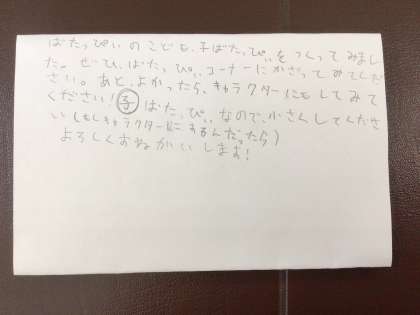 ばたっぴぃのこども、子ばたっぴぃをつくってみまし
た。ぜひ、ばたっぴぃコーナーにかざってみてくだ
さい。あと、よかったら、キャラクターにもしてみて
ください!子ばたっぴぃなので、小さくしてくださ
い(もしキャラクターにするんだったら)
よろしくおねがいします!